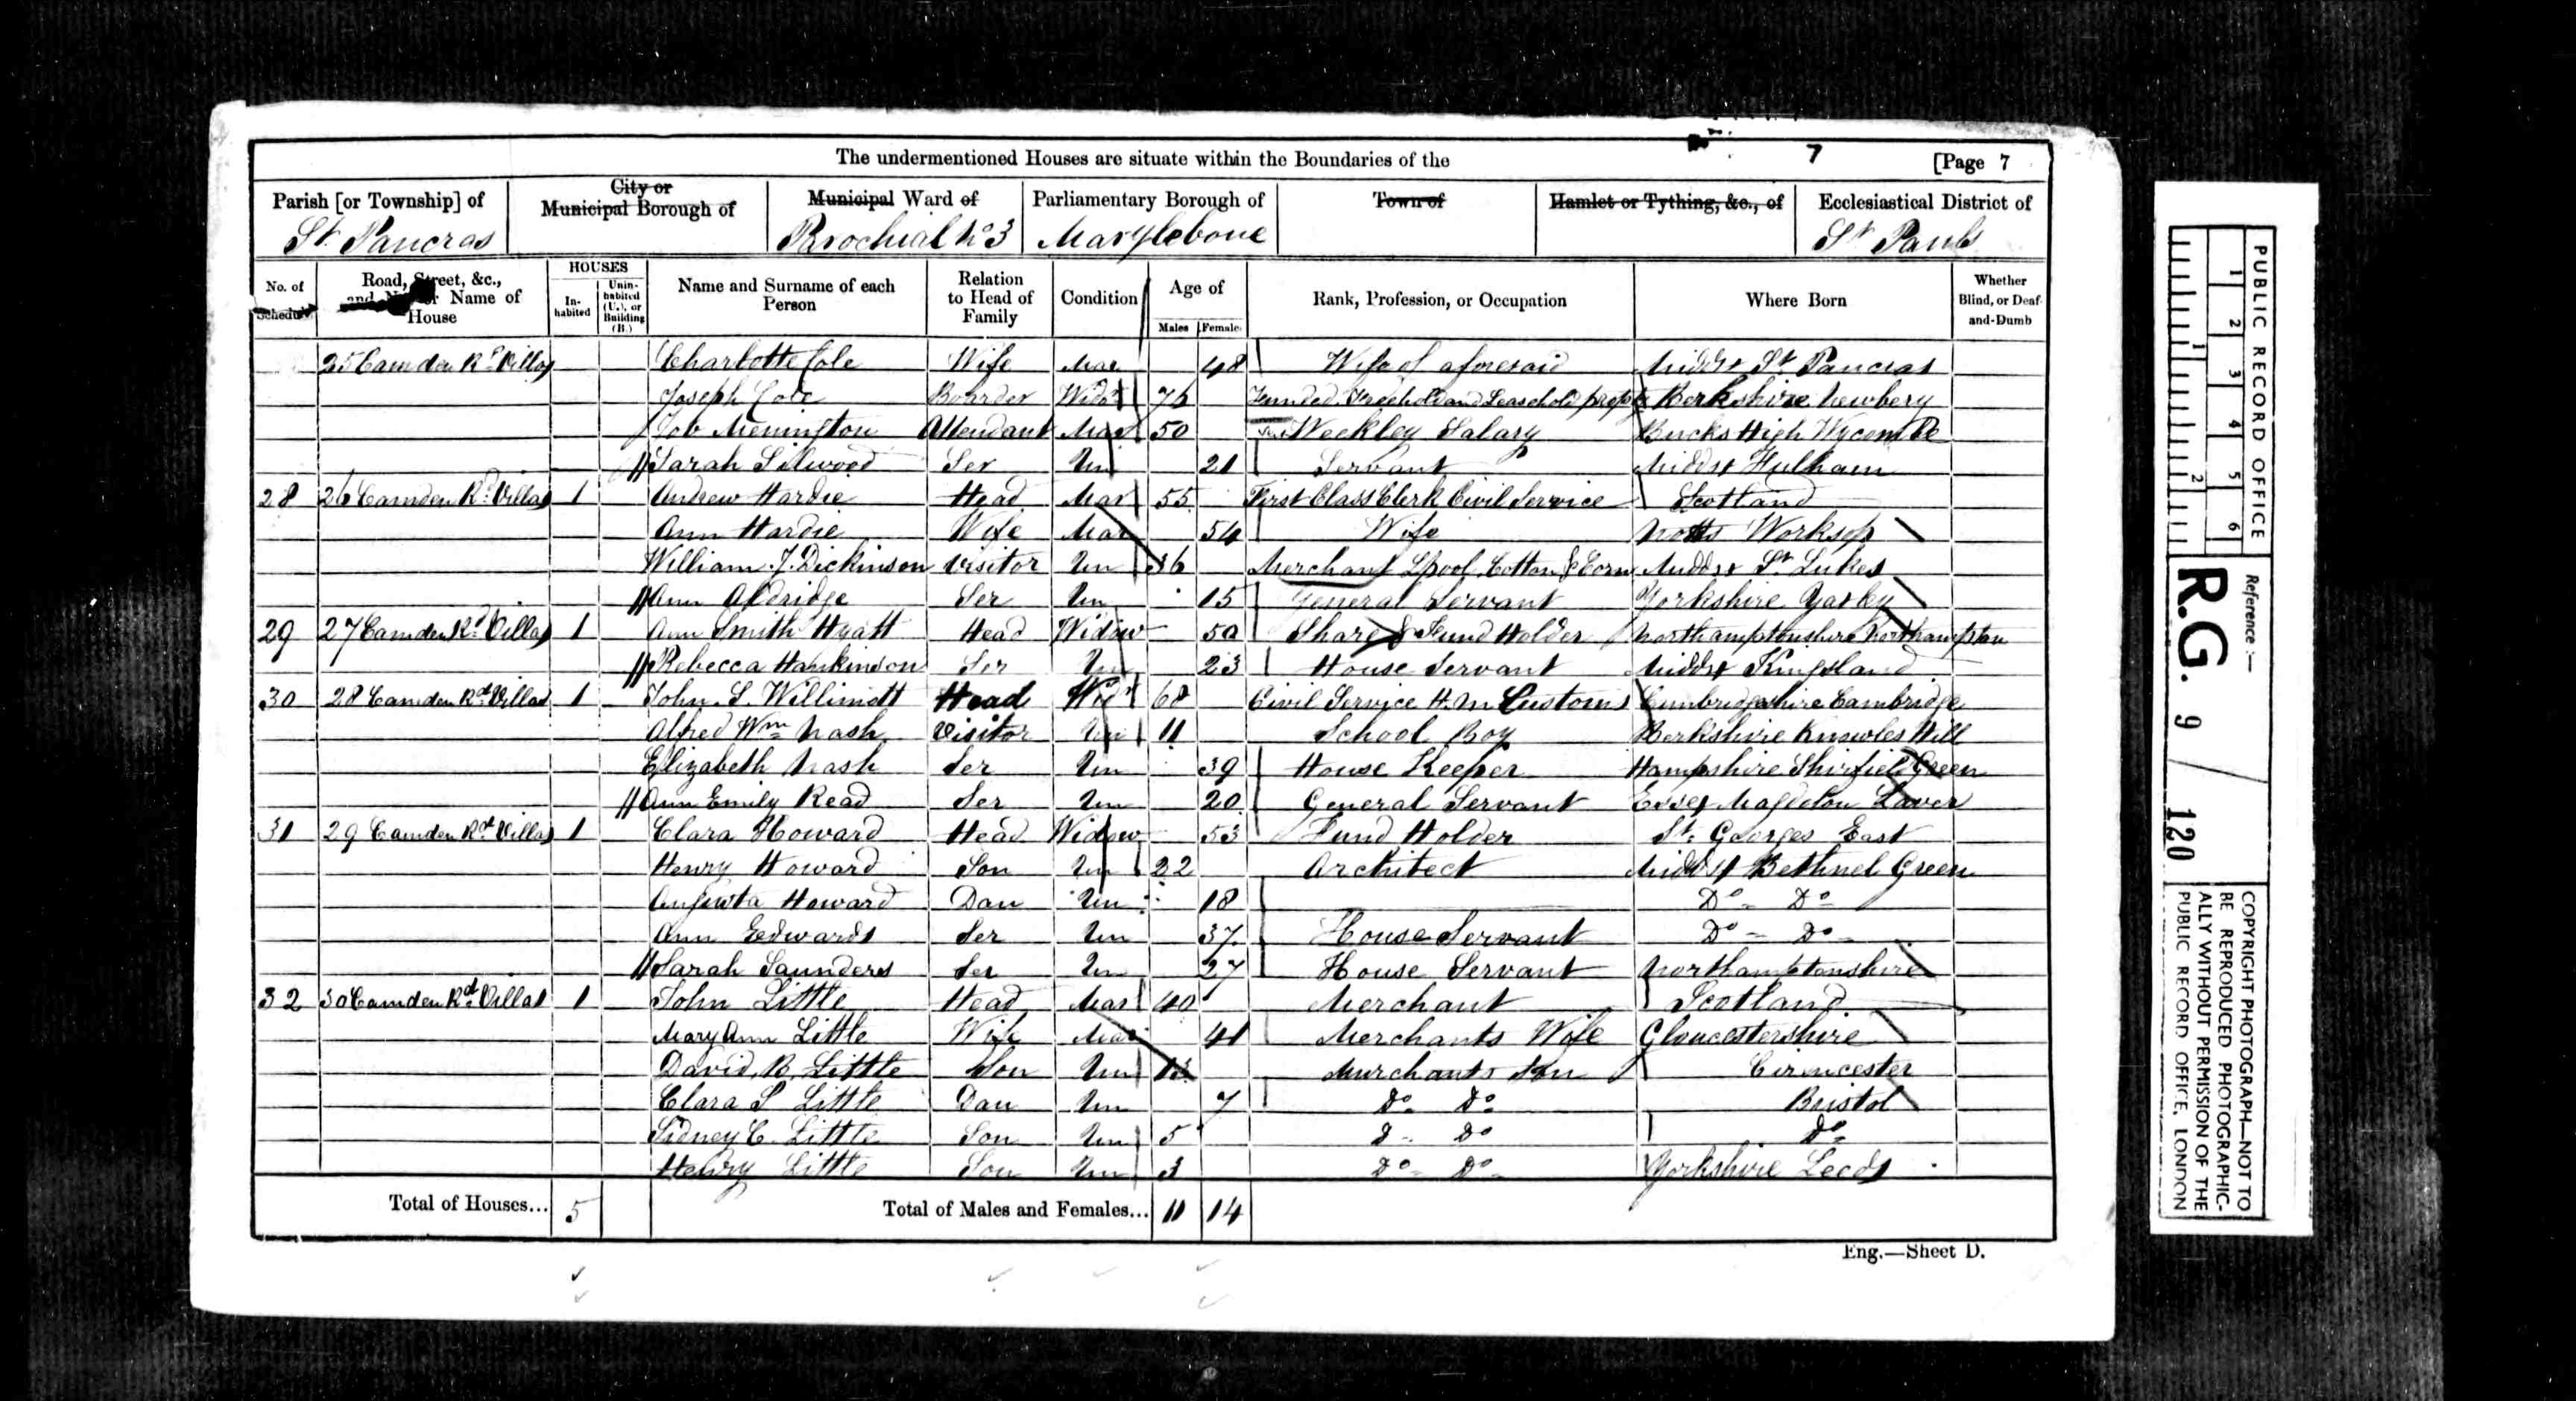 The undermentioned Houses are situate within the Boundaries of the
7
[Page 7
Parish [or Township] of
St. Pancras
City or Municipal Borough of
Municipal Ward of
Parochial No 3
Parliamentary Borough of
Marylebone
Town of
Hamlet or Tything, &c., of
Ecclesiastical District of
St Pauls
No. of Schedule
Road, Street, &c., and No. or Name of House
HOUSES
In-habited
Unin-habited (U.), or Building (B.)
Name and Surname of each Person
Relation to Head of Family
Condition
Age of
Males
Females
Rank, Profession, or Occupation
Where Born
Whether Blind, or Deaf-and-Dumb
25 Camden Rd Villas Charlotte Cole Wife Mar 48 Wife of aforesaid Middsx St Pancras
Joseph Cole Boarder Widr 76 Funded, Freehold and Leasehold propy Berkshire Newbery
Job Merrington Attendant Mar 50 Weekley Salary Bucks High Wycombe
Sarah Silwood Ser Un 21 Servant Middsx Fulham
28 26 Camden Rd Villas 1 Andrew Hardie Head Mar 55 First Class Clerk Civil Service Scotland
Ann Hardie Wife Mar 54 Wife Notts Worksop
William J. Dickinson Visitor Un 36 Merchant Cotton & Corn Middsx St Lukes
Ann Aldridge Ser Un 15 General Servant Yorkshire
29 27 Camden Rd Villas 1 Ann Smith Hyatt Head Widow 50 Share & Fund Holder Northamptonshire Northampton
Rebecca Hankinson Ser Un 23 House Servant Middsx Kingsland
30 28 Camden Rd Villas 1 John S. Willimott Head Widr 68 Civil Service H.M Customs Cambridgeshire Cambridge
Alfred Wm Nash Visitor Un 11 School Boy Berkshire Knowles Hill
Elizabeth Nash Ser Un 39 House Keeper Hampshire Shirfield Green
Ann Emily Read Ser Un 20 General Servant Essex Magdelon Laver
31 29 Camden Rd Villas 1 Clara Howard Head Widow 53 Fund Holder St. Georges East
Henry Howard Son Un 22 Architect Middsx Bethnel Green
Augusta Howard Dau Un 18 Do Do
Ann Edwards Ser Un 37 House Servant Do Do
Sarah Saunders Ser Un 27 House Servant Northamptonshire
32 30 Camden Rd Villas 1 John Little Head Mar 40 Merchant Scotland
Mary Ann Little Wife Mar 41 Merchants Wife Gloucestershire
David B. Little Son Un Merchants Son Cirencester
Clara S Little Dau Un 7 Do Do Bristol
Sidney C. Little Son Un 5 Do Do Do
Henry Little Son Un 3 Do Do Yorkshire Leeds
Total of Houses... 5
Total of Males and Females... 11 14
Eng.—Sheet D.
PUBLIC RECORD OFFICE
1 2 3 4 5 6
1 2
Reference:—
R.G. 9 / 120
COPYRIGHT PHOTOGRAPH—NOT TO
BE REPRODUCED PHOTOGRAPHIC-
ALLY WITHOUT PERMISSION OF THE
PUBLIC RECORD OFFICE, LONDON